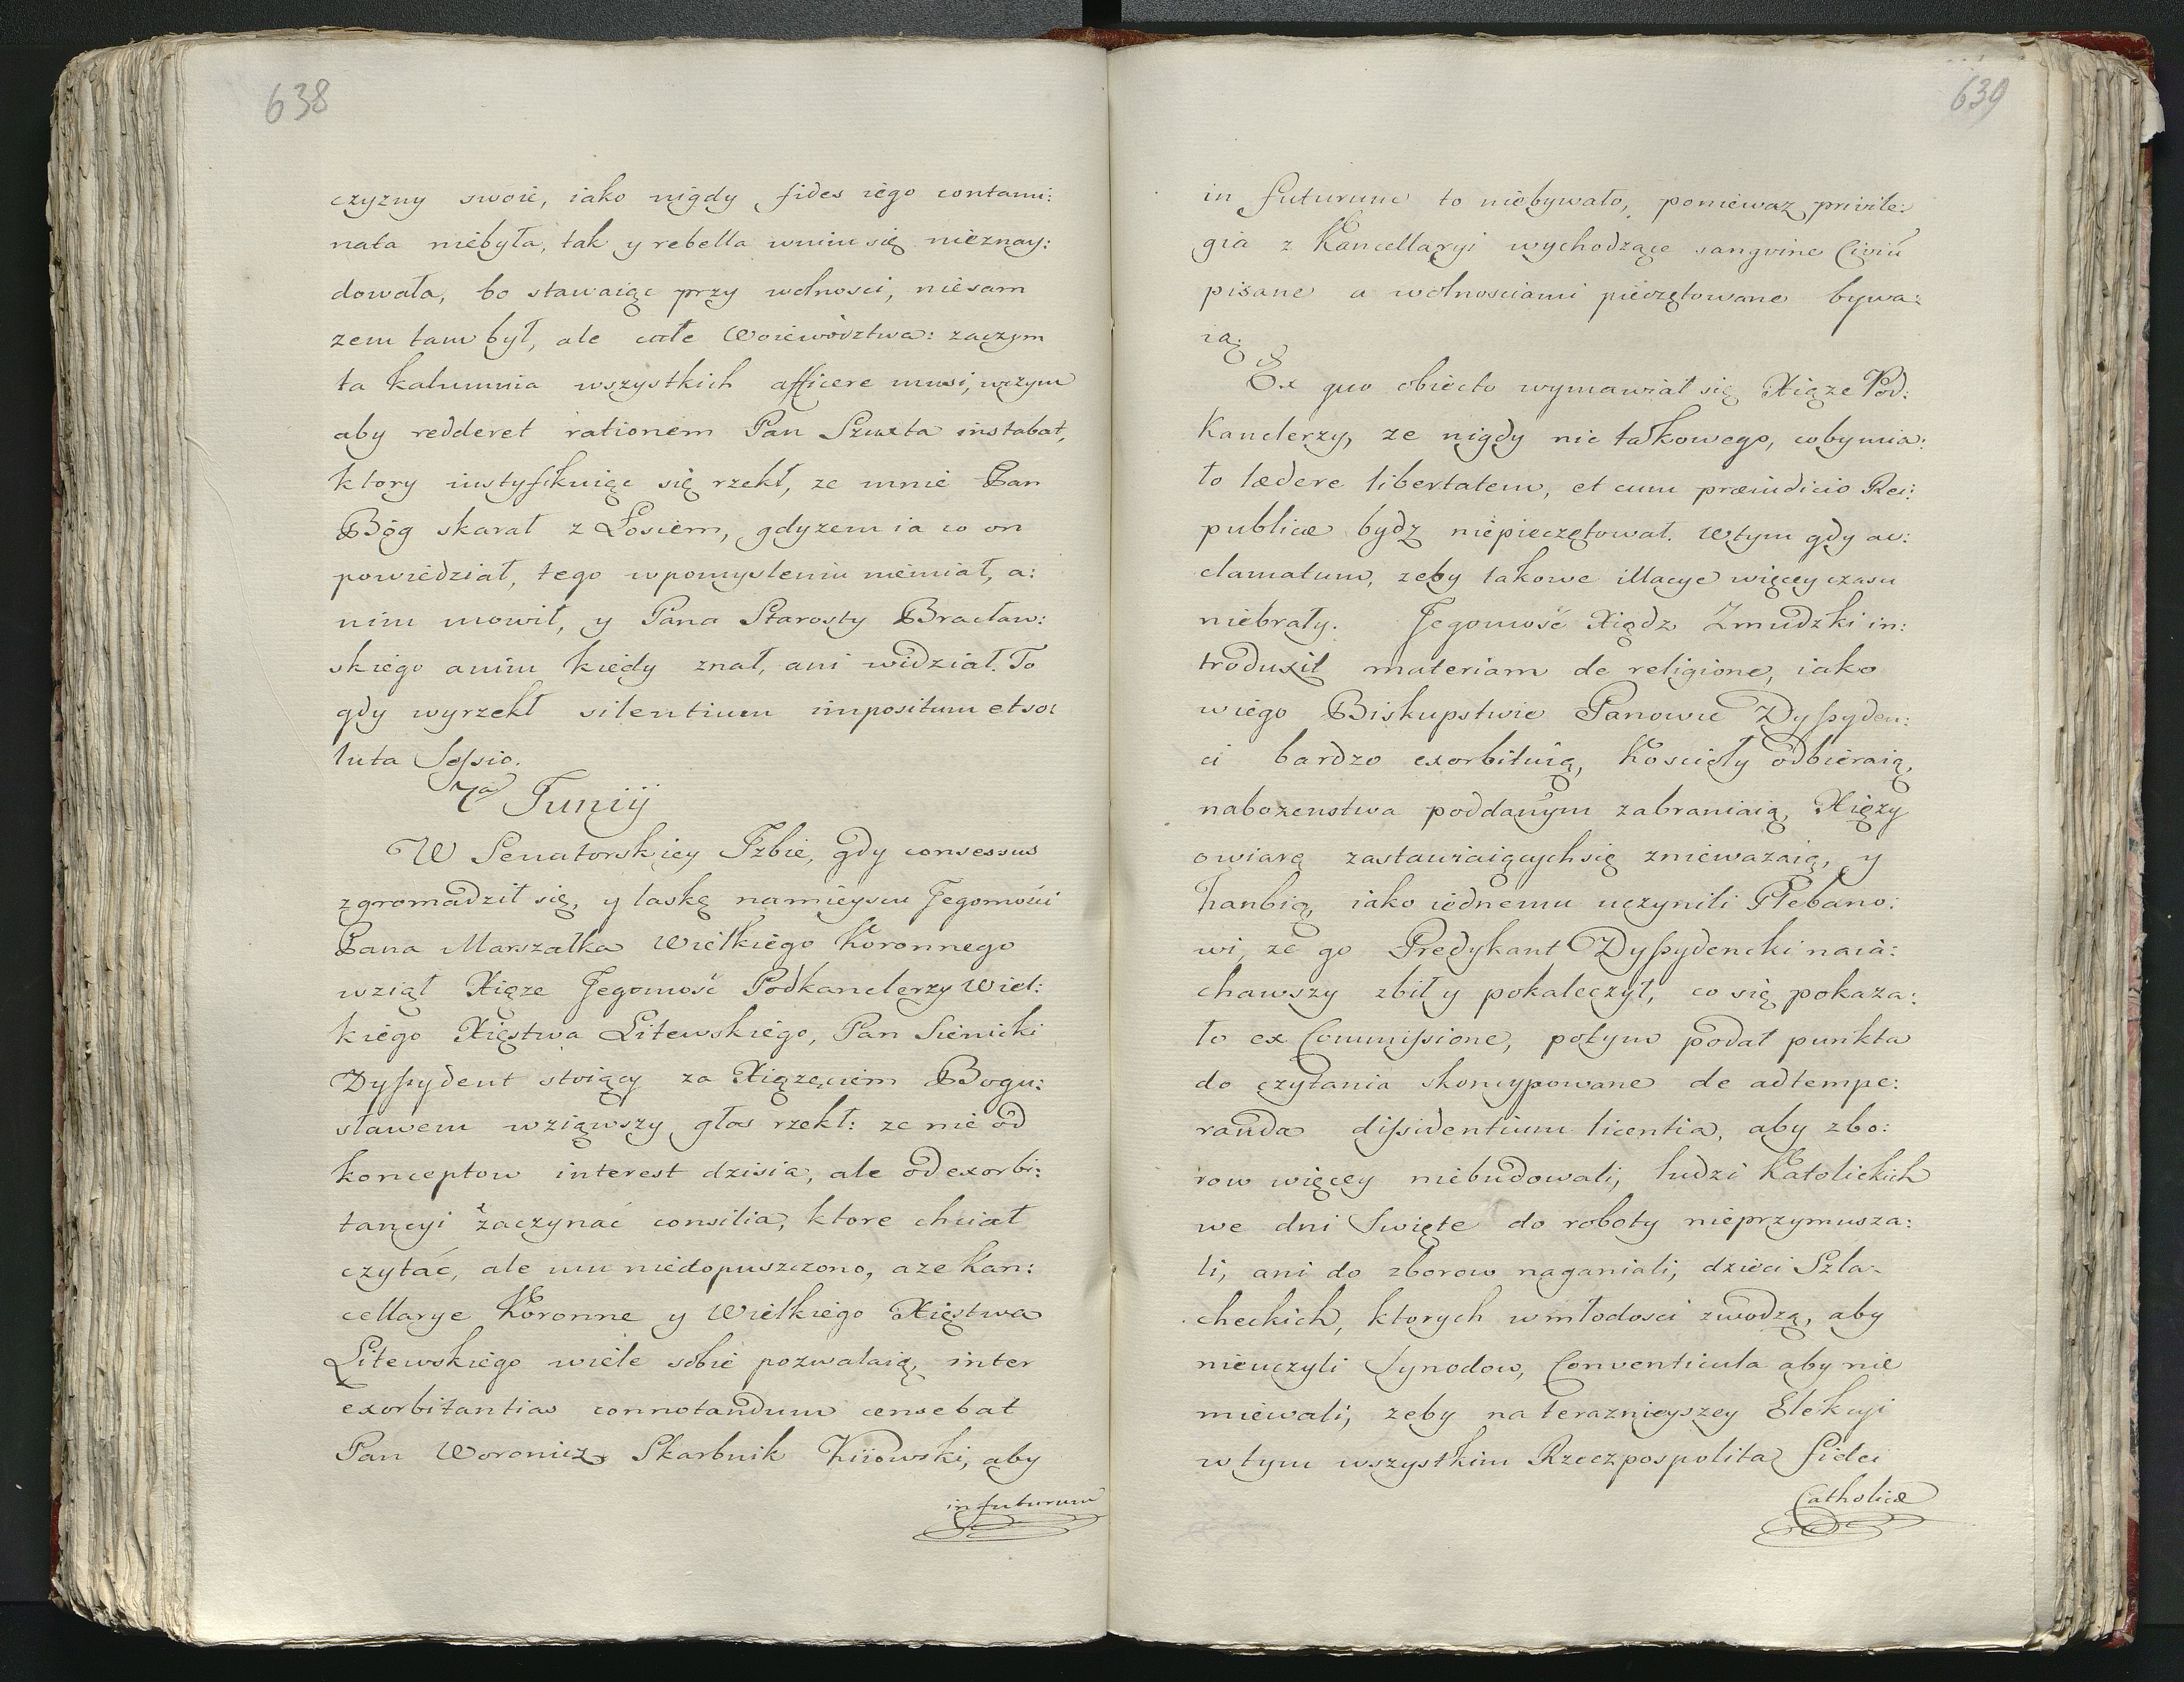 638
czyzny swoie, iako nigdy fides iego contami:
nata niebyła, tak y rebella wnim się nieznay:
dowała, bo stawaiąc przy wolnosci, niesam
zem tam był, ale całe Woiewodztwa: zaczym
ta kalumnia wszystkich afficere musi, wczym
aby redderet rationem Pan Szuxta instabat,
ktory iustyfikuiąc się rzekł, ze mnie Pan
Bóg skarał z Łosiem, gdyzem ia co on
powiedział, tego wpomysleniu niemiał, a:
nim mowił, y Pana Starosty Bracław:
skiego anim kiedy znał, ani widział. To
gdy wyrzekł silentium impositum et sol
luta Sessio.
7a Junij
W Senatorskiey Izbie, gdy consessus
zgromadził się, y laskę namieyscu Jegomości
Pana Marszałka Wielkiego Koronnego
wziął Xiąze Jegomość Podkanclerzy Wiel:
kiego Xięstwa Litewskiego, Pan Sienicki
Dyssydent stoiący za Xiązęciem Bogu:
sławem wziąwszy głos rzekł: ze nie od
konceptow interest dzisia, ale od exorbi:
tancyi zaczynać consilia, ktore chciał
czytać, ale mu niedopuszczono, aze Kan:
cellarye Koronne y Wielkiego Xięstwa
Litewskiego wiele sobie pozwalaią, inter
exorbitantias connotandum censebat
Pan Woronicz Skarbnik Kiiowski, aby
in futurum
639
in futurum to niebywało, poniewaz privile:
gia z Kancellaryi wychodzące sangvine Civiū
pisane a wolnosciami pieczętowane bywa:
ią.
Ex quo obiecto wymawiał się Xiąze Pod:
Kanclerzy, ze nigdy nic takowego, coby mia:
ło lædere libertatem, et cum præiudicio Rei:
publicæ bydz niepieczętował. Wtym gdy ac:
clamatum, zeby takowe illacye więcey czasu
niebrały. Jegomość Xiądz Zmudzki in:
troduxit materiam de religione, iako
wiego Biskupstwie Panowie Dyssyden:
ci bardzo exorbituią, Koscioły odbieraią,
nabozenstwa poddanym zabraniaią, Xięzy
owiarę zastawiaiących się zniewazaią, y
hanbią, iako iednemu uczynili Plebano:
wi, ze go Predykant Dyssydencki naia:
chawszy zbił y pokaleczył, co się pokaza:
ło ex Commissione, potym podał punkta
do czytania skoncypowane de adtempe:
randa dissidentium licentia, aby zbo:
row więcey niebudowali, ludzi Katolickich
we dni Swięte do roboty nieprzymusza:
li, ani do zborow naganiali, dzieci Szla:
checkich, ktorych wmłodosci zwodzą, aby
nieuczyli Synodow, Conventicula aby nie
miewali, zeby na teraznieyszey Elekcyi
w tym wszystkim Rzeczpospolita fidei
Catholicæ